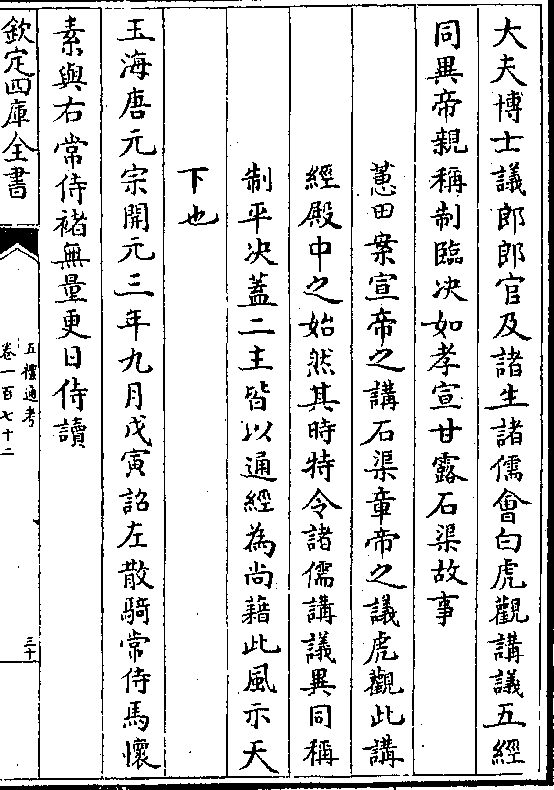 大夫博士議郎郎官及諸生諸儒會白虎觀講議五經
同異帝親稱制臨决如孝宣甘露石渠故事
蕙田案宣帝之講石渠章帝之議虎觀此講
經殿中之始然其時特令諸儒講議異同稱
制平决蓋二主皆以通經為尚藉此風示天
下也
玉海唐元宗開元三年九月戊寅詔左散騎常侍馬懷
素與右常侍褚無量更日侍讀
欽定四庫全書
五禮通考
卷一百七十二
三十